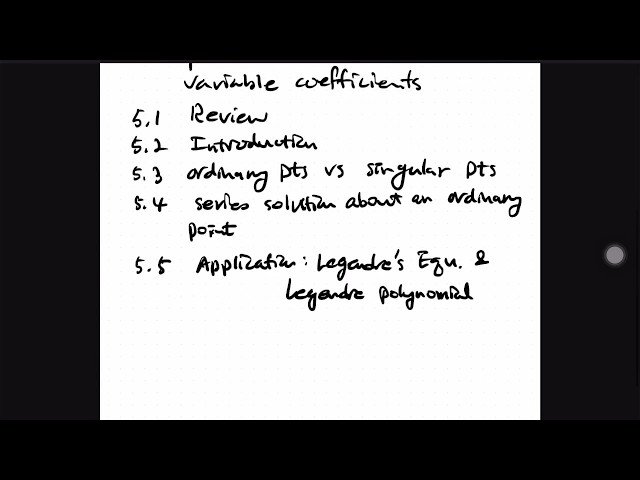 variable coefficients
5.1 Review
5.2 Introduction
5.3 ordinary pts vs singular pts
5.4 series solution about an ordinary
point
5.5 Application: Legendre's Equ. &
Legendre polynomial